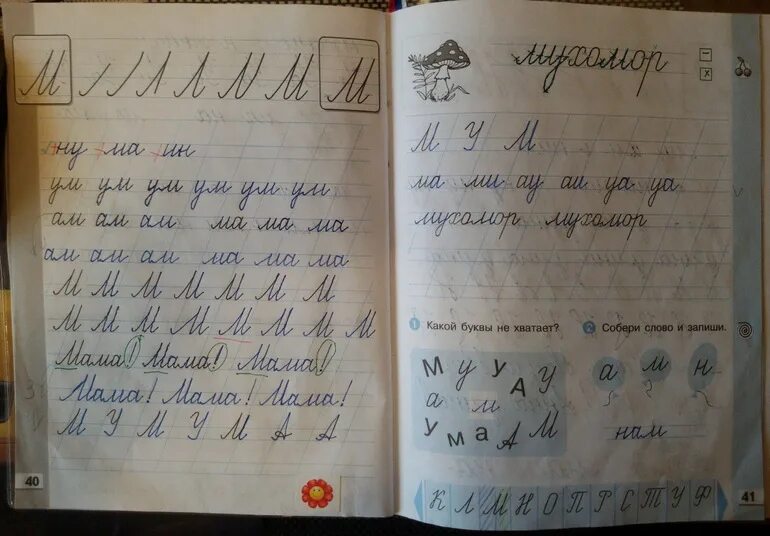 М Л Л М М
ну ма ин
ум ум ум ум ум ум
ам ам ам ма ма ма
ам ам ам ма ма ма
М М М М М М М
М М М М М М М М
Мама! Мама! Мама!
Мама! Мама! Мама!
М У М У М А А
40
мухомор
М У М
ма ми ау аи уа уа
мухомор мухомор
1 Какой буквы не хватает?
М у У А У
а м
У м а А М
2 Собери слово и запиши.
а м н
нам
К Л М Н О П Р С Т У Ф
41